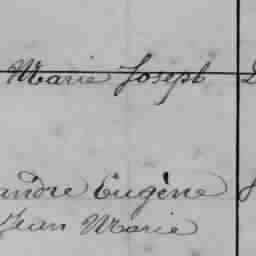 Marie Joseph
andre Eugène
Jean Marie